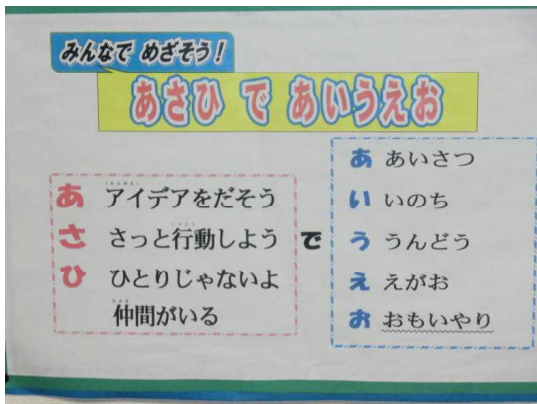 みんなで めざそう！
あさひ で あいうえお
あ アイデアをだそう
さ さっと行動しよう
ひ ひとりじゃないよ
仲間がいる
で
あ あいさつ
い いのち
う うんどう
え えがお
お おもいやり